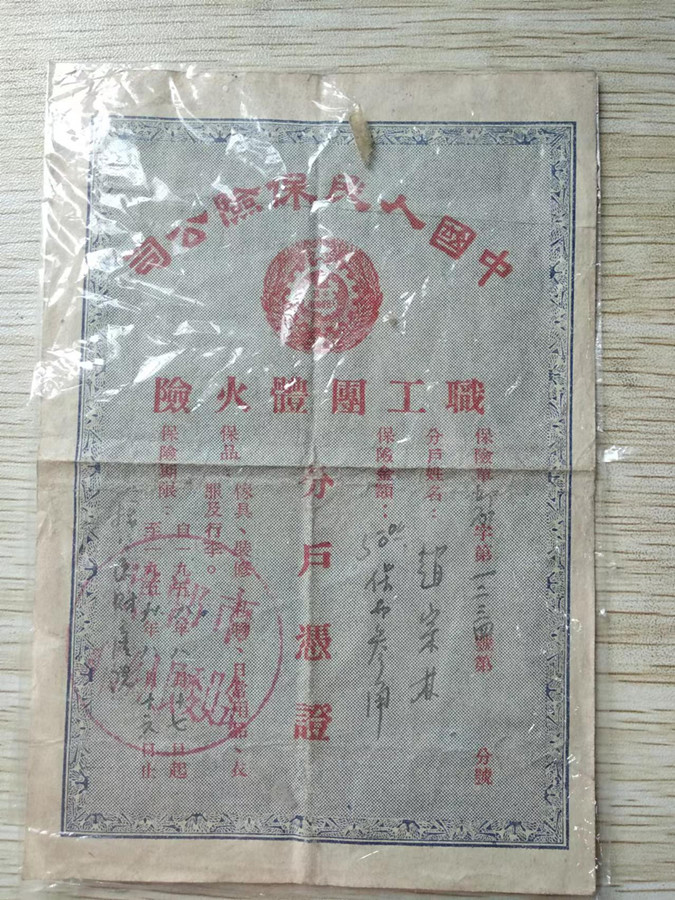 中國人民保險公司
職工團體火險
保險單字第一二三四號第 分號
分戶姓名：趙崇林
保險金額：500
分戶憑證
保品：傢具、裝修、日常用品、衣
服及行李。
保險期限：自一九五八年八月十七日起
至一九五九年八月十六日止
財產